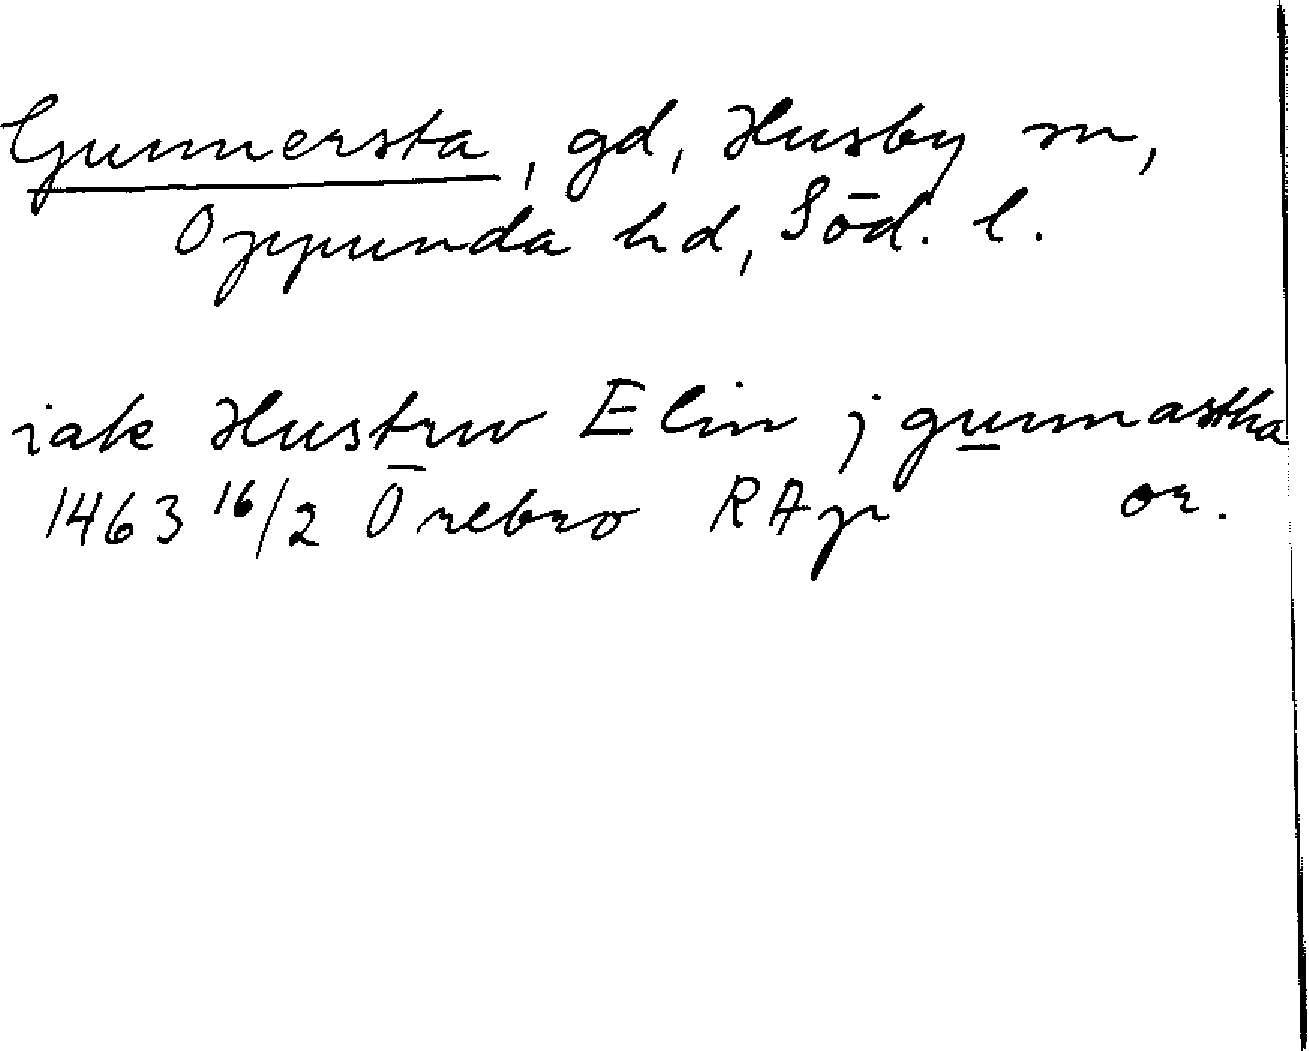 Gunnersta, gd, Husby sn,
Oppunda hd, Söd. l.
iak Hustrw Elin j gunnastha
1463 16/2 Örebro RAp or.